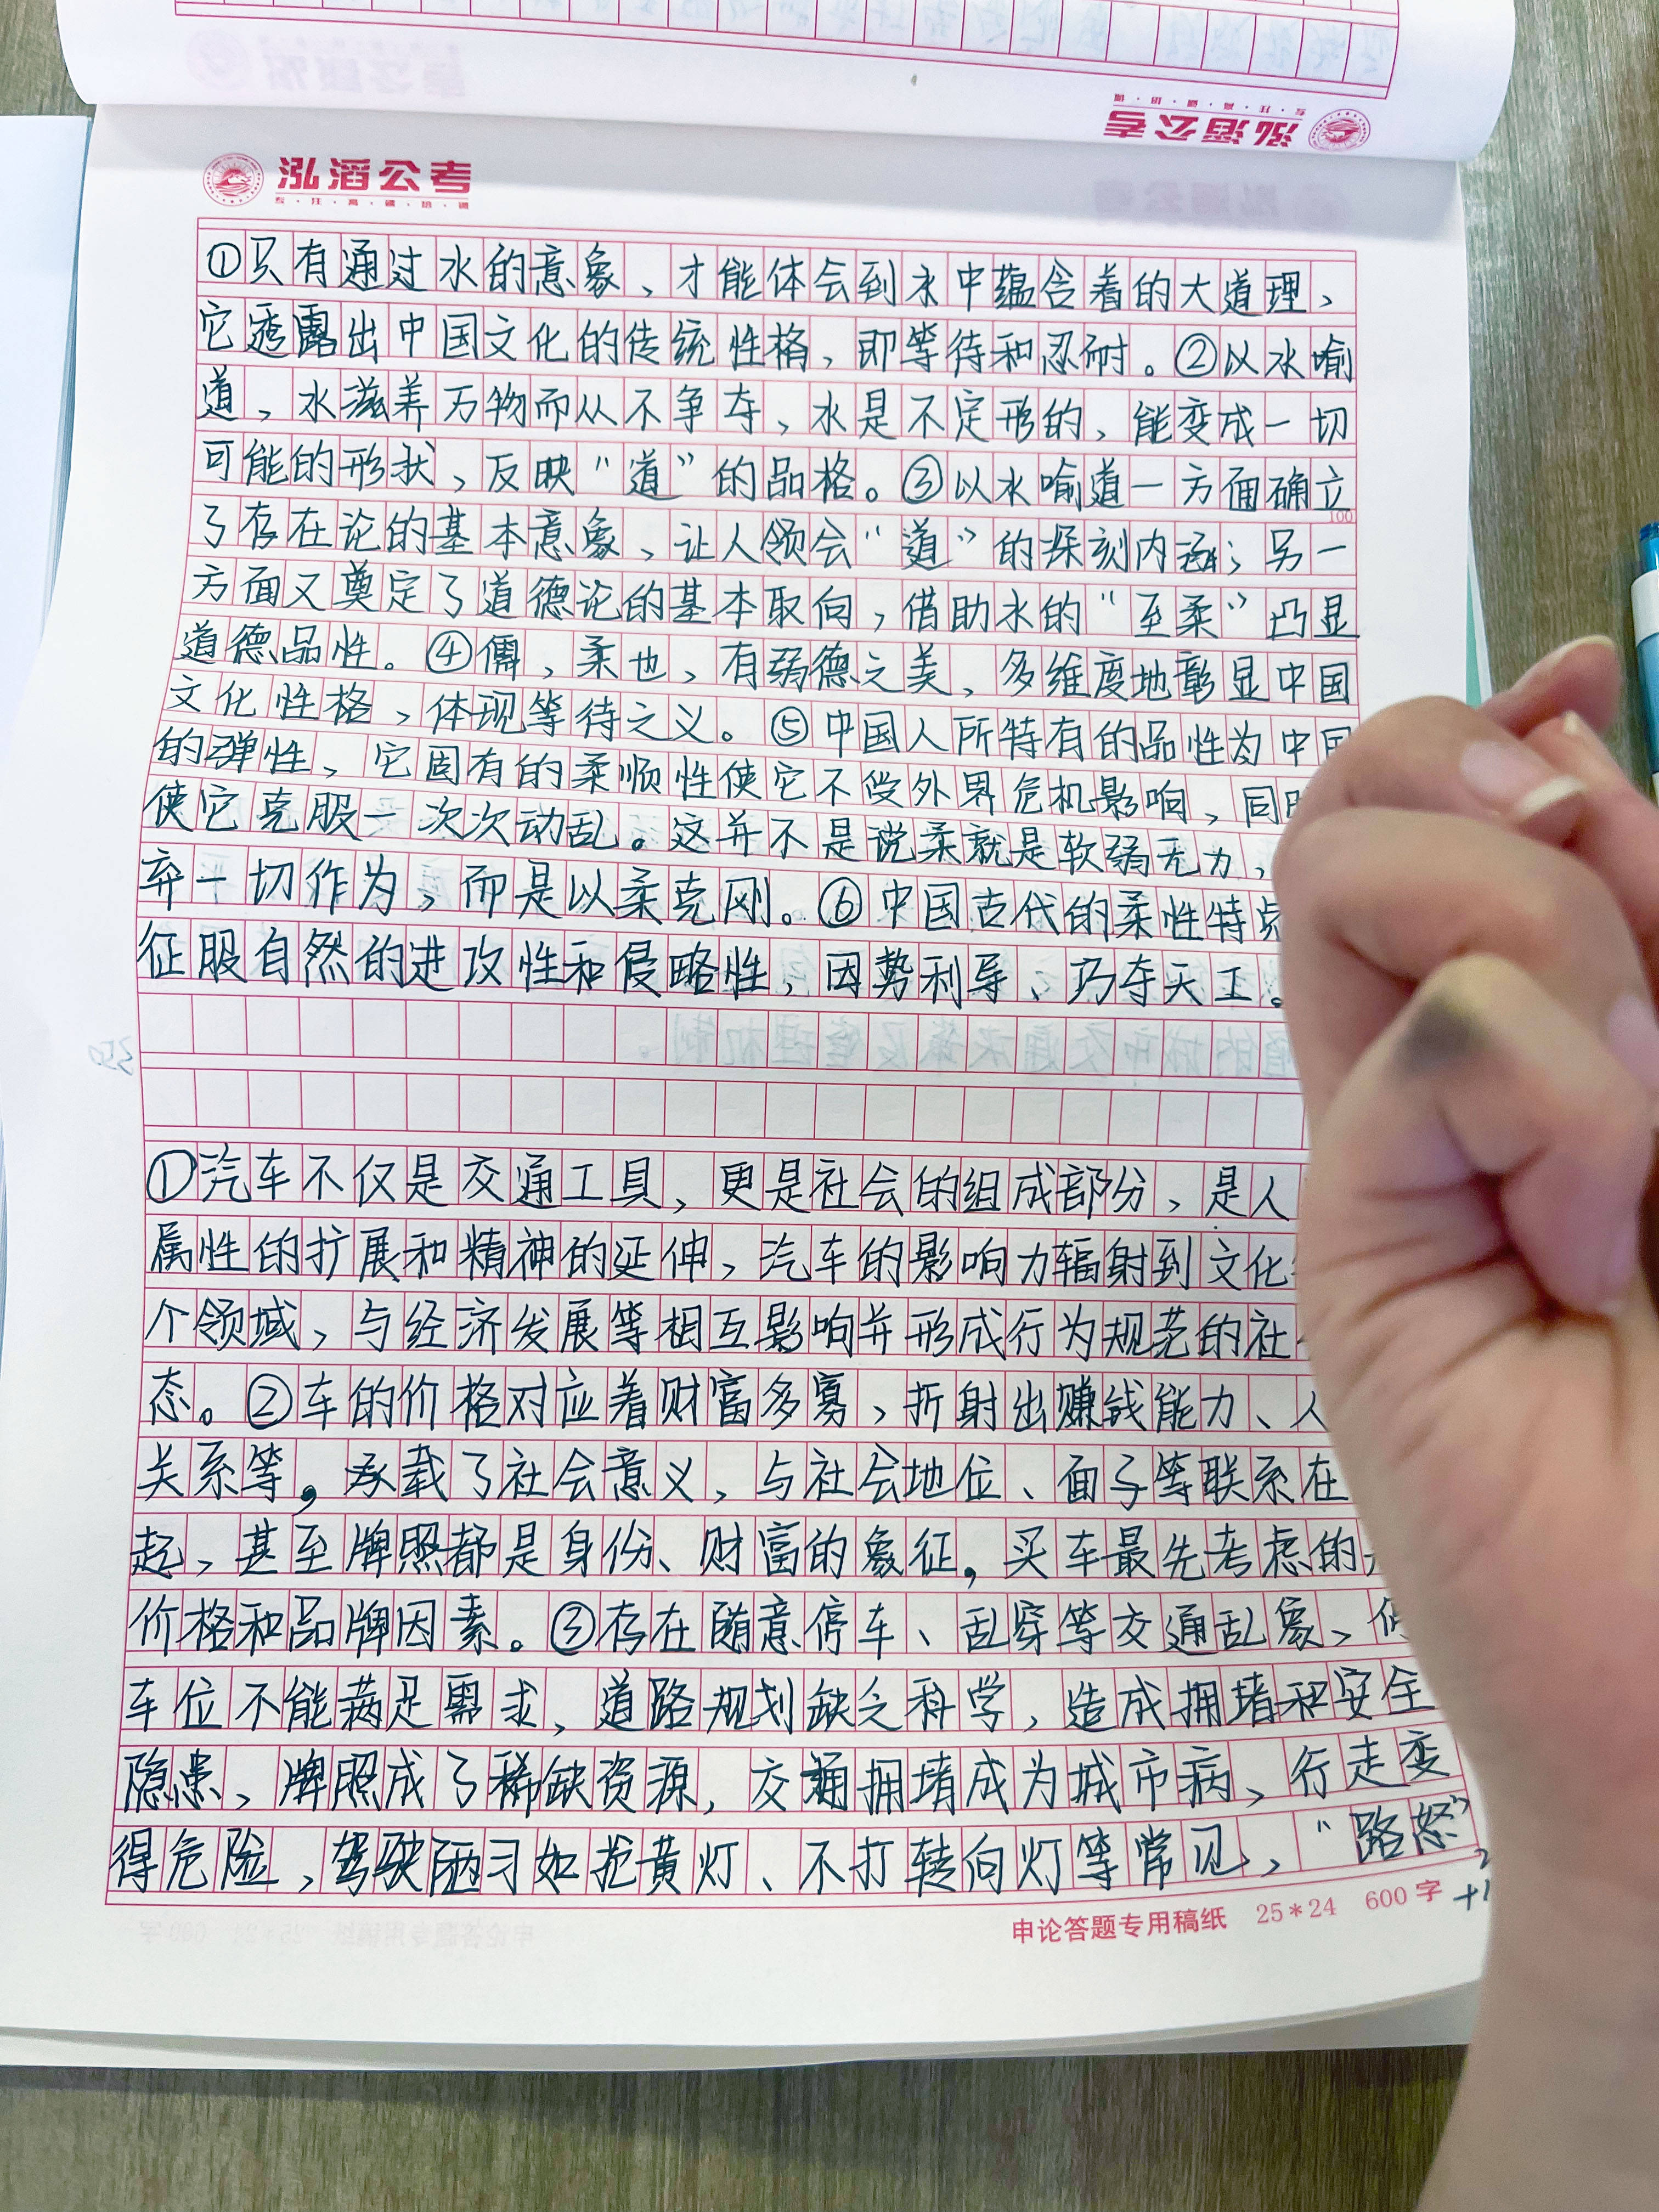 泓湝公考
①只有通过水的意象，才能体会到水中蕴含着的大道理，
它透露出中国文化的传统性格，即等待和忍耐。②从水喻
道，水滋养万物而从不争夺，水是不定形的，能变成一切
可能的形状，反映“道”的品格。③以水喻道一方面确立
100
了存在论的基本意象，让人领会“道”的深刻内涵；另一
方面又奠定了道德论的基本取向，借助水的“至柔”凸显
道德品性。④儒，柔也，有弱德之美，多维度地彰显中国
文化性格，体现等待之义。⑤中国人所特有的品性为中国
的弹性，它固有的柔顺性使它不受外界危机影响，
使它克服一次次动乱。这并不是说柔就是软弱无力，
弃一切作为，而是以柔克刚。⑥中国古代的柔性特
征服自然的进攻性和侵略性，因势利导、巧夺天工。
①汽车不仅是交通工具，更是社会的组成部份，是人
属性的扩展和精神的延伸，汽车的影响力辐射到文化
个领域，与经济发展等相互影响并形成行为规范的社
态。②车的价格对应着财富多寡，折射出赚钱能力、人
关系等，承载了社会意义，与社会地位、面子等联系在
起，甚至牌照都是身份、财富的象征，买车最先考虑的
价格和品牌因素。③存在随意停车、乱穿等交通乱像，
车位不能满足需求，道路规划缺乏科学，造成拥堵和安全
隐患，牌照成了稀缺资源，交通拥堵成为城市病，行走变
得危险，驾驶陋习如抢黄灯、不打转向灯等常见，“路怒”
申论答题专用稿纸 25*24 600字